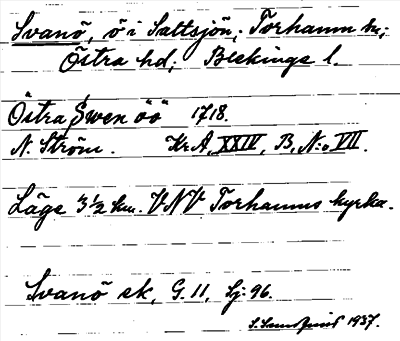 Svanö, ö i Saltsjön; Torhamn sn;
Östra hd; Blekinge l.
Östra Swen öö 1718.
N. Ström. Kr.A, XXIV, B, N:o VII.
Läge 3 1/2 km. VNV Torhamns kyrka.
Svanö ek, G. 11, Sj: 96.
1937.